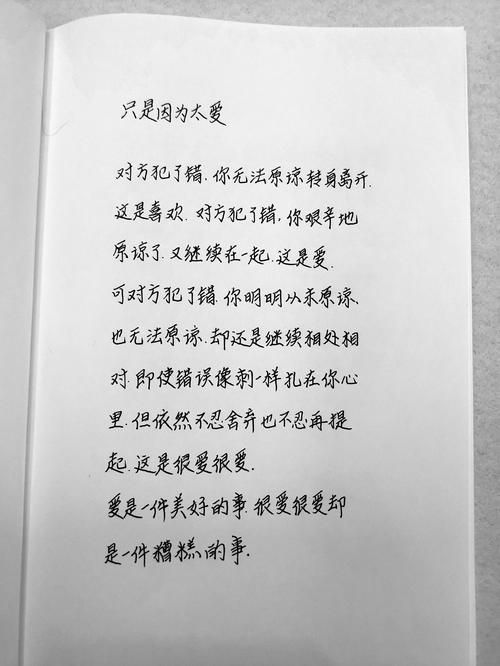 只是因为太爱
对方犯了错.你无法原谅转身离开.
这是喜欢.对方犯了错,你艰辛地
原谅了.又继续在一起.这是爱.
可对方犯了错.你明明从未原谅、
也无法原谅.却还是继续相处相
对.即使错误像刺一样扎在你心
里.但依然不忍舍弃也不忍再提
起.这是很爱很爱.
爱是一件美好的事.很爱很爱却
是一件糟糕的事.